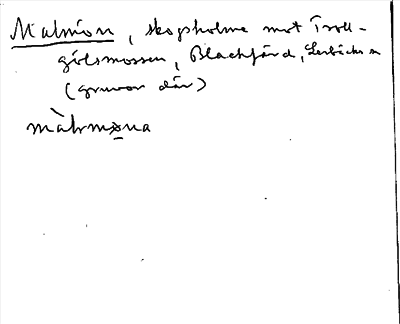 Malmön, skogsholme mot Troll-
gölsmossen, Blackfärd, Lerbäcks sn
(gruvor där)
màlmøna